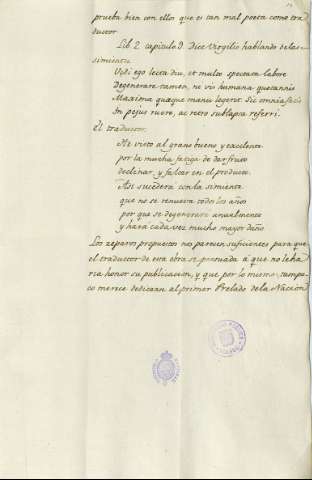 prueba bien con ellos que es tan mal poeta como tra
ductor
Lib. 2 capitulo D. Dice Virgilio hablando de las
simientes
Vidi ego lecta diu, et multo spectata labore
Degenerare tamen, ni vis humana quotannis
Maxima quaeque manu legeret sic omnia fatis
In pejus ruere, ac retro sublapsa referri.
El traductor.
He visto al grano bueno y excelente
por la mucha fatiga de dar fruto
declinar, y faltar en el producto.
Asi sucederá con la simiente
que no se renueva todos los años
por que se degenerare anualmente
y hará cada vez mucho mayor daño
Los reparos propuestos no parecen suficientes para que
el traductor de esta obra se persuada á que no le ha
ria honor su publicacion, y que por lo mismo tampo
co merece dedicarse al primer Prelado de la Nacion